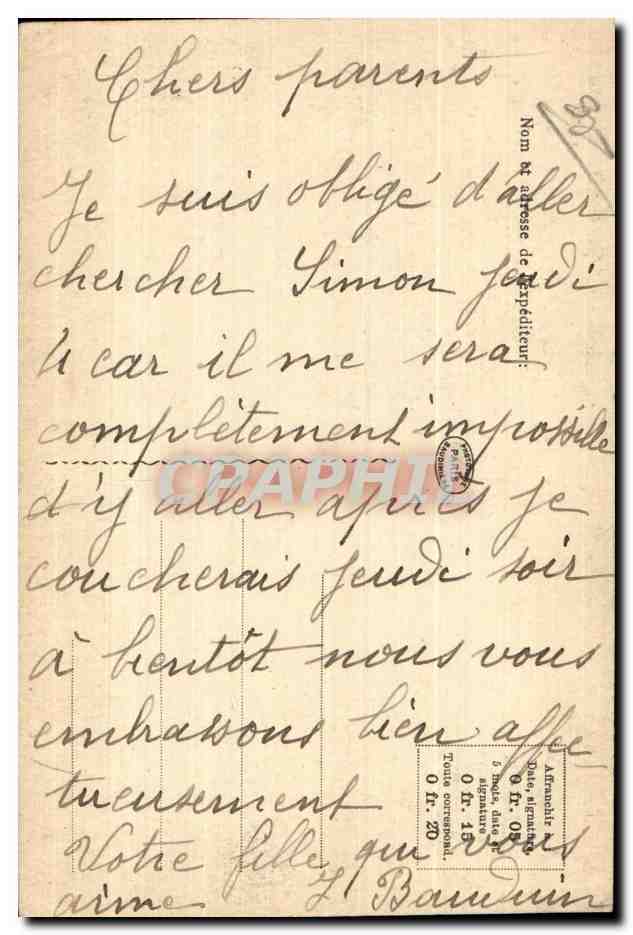 Chers parents
Je suis obligé d'aller
chercher Simon Jeudi
4 car il me sera
complètement impossible
d'y aller après je
coucherais Jeudi soir
à bientôt nous vous
embrassons bien affec
tueusement
Votre fille qui vous
aime J Bauduin
Nom et adresse de l'expéditeur:
Affranchir à
Date, signature
0 fr. 05
5 mots, date et
signature
0 fr. 15
Toute correspond.
0 fr. 20
PARIS
CPAPHIL